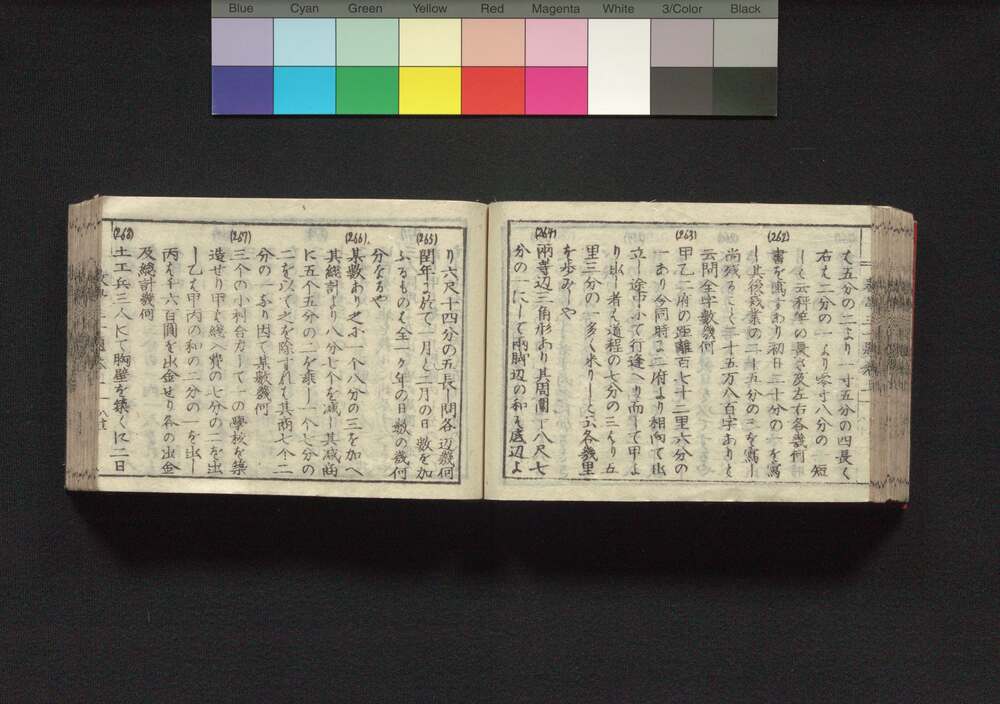 Blue Cyan Green Yellow Red Magenta White 3/Color Black
は五分の二より一寸五分の四長く
右は二分の一より零寸八分の一短
しと云秤竿の長さ及左右各幾何
(262)
書を寫すあり初日二十分の一を寫
し其後残業の二十五分の三を寫し
尚残ること二十五万八百字ありと
云問全字數幾何
(263)
甲乙二府の距離百七十二里六分の
一あり今同時に二府より相向て出
立し途中にて行逢へり而して甲よ
り出し者は道程の七分の三より五
里三分の一多く来りしと云各幾里
を歩みしや
(264)
兩等辺三角形あり其周圍十八尺七
分の一にして兩脚辺の和は底辺よ
り六尺十四分の五長し問各辺幾何
(265)
閏年に於て一月と二月の日數を加
ふるものは全一ヶ年の日數の幾何
分なるや
(266)
某數あり之に一个八分の三を加へ
其総計より八分七个を減し其減商
に五个五分の二を乗し一个七分の
二を以て之を除すれは其商七个二
分の一なり因て某數幾何
(267)
三个の小村合力して一の學校を築
造せり甲は総入費の七分の二を出
し乙は甲丙の和の二分の一を出し
丙は千六百圓を出金せり各の出金
及総計幾何
(268)
土工兵三人にて胸壁を築くに二日